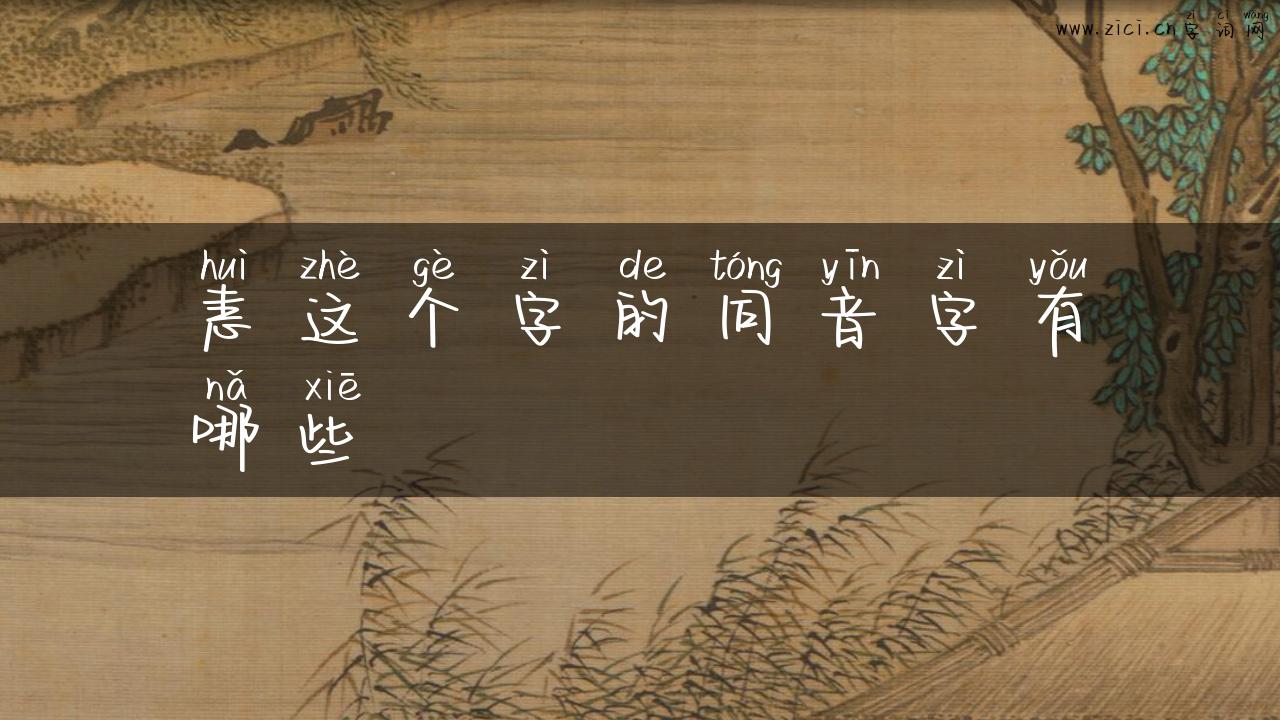 zì cí wǎng
www.zici.cn字词网
huì zhè gè zì de tóng yīn zì yǒu
恚这个字的同音字有
nǎ xiē
哪些